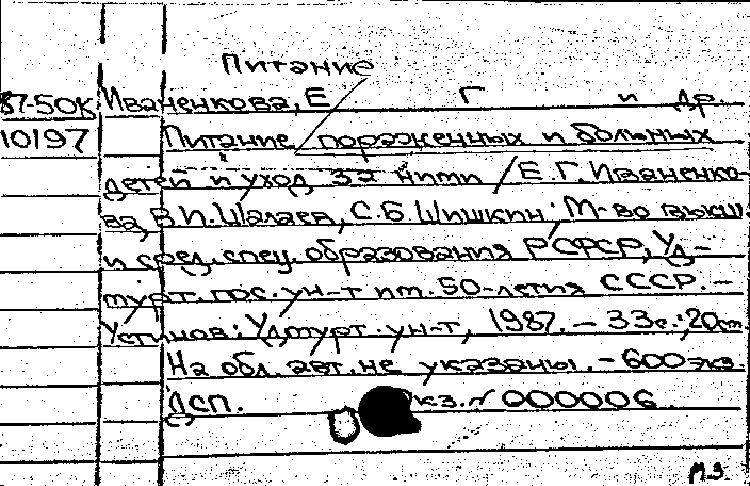 Питание
87-50К Иваненкова, Е Г и др.
10197 Питание пораженных и больных
детей и уход за ними / Е. Г. Иваненко-
ва, В. И. Шалаев, С. Б. Шишкин; М-во высш.
и сред. спец. образования РСФСР, Уд-
мурт. гос. ун-т им. 50-летия СССР. -
Устинов: Удмурт. ун-т, 1987. - 33с.; 20см
На обл. авт. не указаны. - 600 экз.
ДСП. кз. № 000006